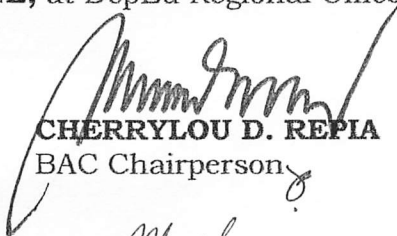 at DepEd Regional Office
CHERRYLOU D. REPIA
BAC Chairperson